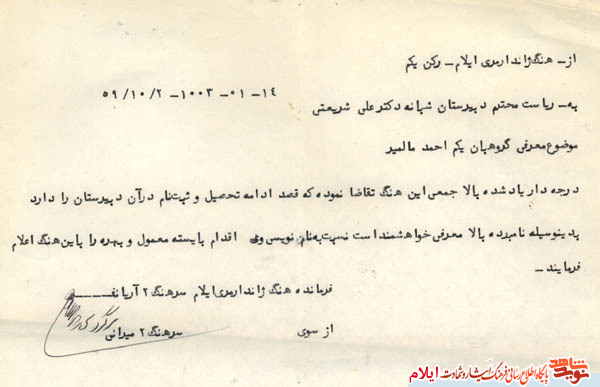 از ـ هنگ ژاندارمری ایلام ـ رکن یکم
۱۴ ـ ۰۱ ـ ۱۰۰۳ ـ ۵۹/۱۰/۲
به ـ ریاست محترم دبیرستان شبانه دکتر علی شریعتی
موضوع معرفی گروهبان یکم احمد مالمیر
درجه دار یاد شده بالا جمعی این هنگ تقاضا نموده که قصد ادامه تحصیل و ثبت نام در آن دبیرستان را دارد
بدینوسیله نامبرده بالا معرفی خواهشمند است نسبت به نام نویسی وی اقدام بایسته معمول و بهره را باین هنگ اعلام
فرمایند ـ
فرمانده هنگ ژاندارمری ایلام سرهنگ ۲ آریانفـــر
از سوی سرهنگ ۲ میدانی
نوید شاهد
پایگاه اطلاع رسانی فرهنگ ایثار و شهادت ایلام